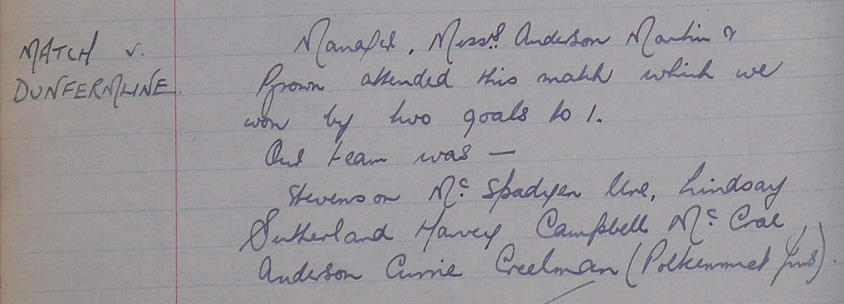 MATCH v.
DUNFERMLINE.
Manager, Messrs Anderson Martin &
Brown attended this match which we
won by two goals to 1.
Our team was —
Stevenson McSpadyen Ure, Lindsay
Sutherland Harvey Campbell McCrae
Anderson Currie Creelman (Polkemmet Juns).